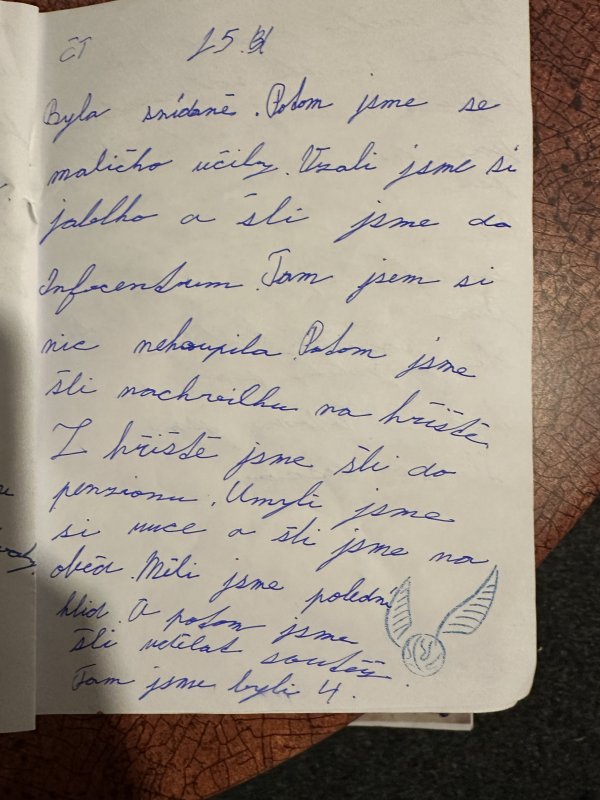 ČT 15.
Byla snídaně. Potom jsme se
maličko učily. Vzali jsme si
jabelko a šli jsme do
Infocentrum. Tam jsem si
nic nehoupila. Potom jsme
šli nachveilku na hřiště
Z hřiště jsme šli do
penzionu. Umyli jsme
si ruce a šli jsme na
oběd. Měli jsme polední
klid. A potom jsme
šli udělat soutěž.
Tam jsme byli 4.